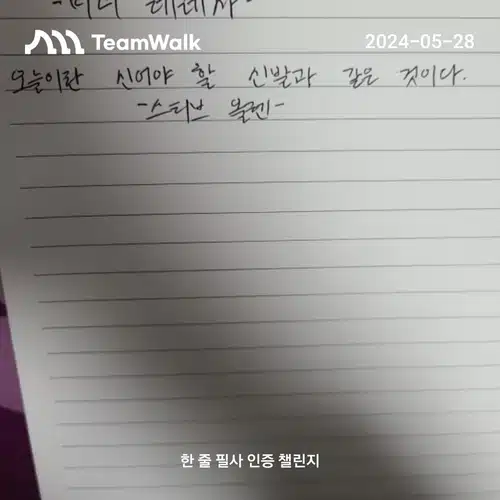 -마더 테레사-
TeamWalk
2024-05-28
오늘이란 신어야 할 신발과 같은 것이다.
-스티브 올렌-
한 줄 필사 인증 챌린지